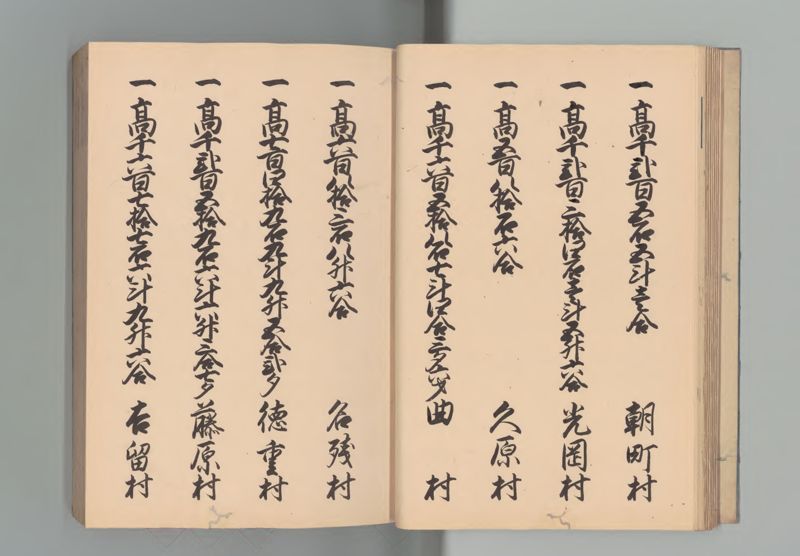 一高千弐百五石五斗壱合 朝町村
一高千弐百三拾四石壱斗五升六合 光岡村
一高五百八拾石六合 久原村
一高千六百五拾八石七斗四合三夕 曲村
一高六百八拾三石八升六合 名残村
一高七百四拾九石九斗九升五合弐夕 徳重村
一高千弐百五拾九石六斗六升三合七夕 藤原村
一高千六百七拾七石六斗九升六合 吉留村